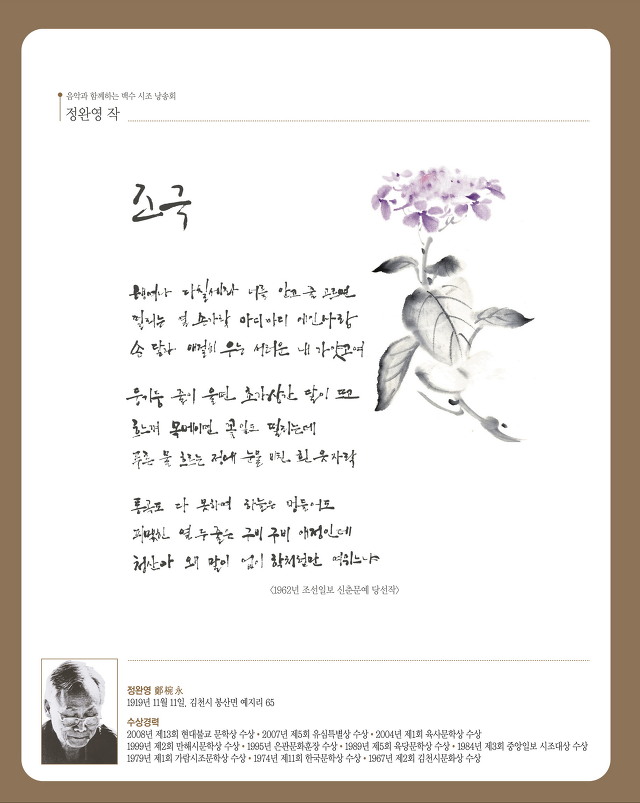 음악과 함께하는 백수 시조 낭송회
정완영 작
조국
행여나 다칠세라 너를 안고 줄 고르면
떨리는 열 손가락 마디마디 에인사랑
손 닿자 애절히 우는 서러운 내 가얏고여
둥기둥 줄이 울면 초가삼간 달이 뜨고
흐느껴 목메이면 꽃잎도 떨리는데
푸른 물 흐르는 정에 눈물 비친 흰 옷자락
통곡도 다 못하여 하늘은 멍들어도
피맺힌 열두 줄은 구비 구비 애정인데
청산아 왜 말이 없이 학처럼만 여위느냐
〈1962년 조선일보 신춘문예 당선작〉
정완영 鄭椀永
1919년 11월 11일, 김천시 봉산면 예지리 65
수상경력
2008년 제13회 현대불교 문학상 수상 • 2007년 제5회 유심특별상 수상 • 2004년 제1회 육사문학상 수상
1999년 제2회 만해시문학상 수상 • 1995년 은관문화훈장 수상 • 1989년 제5회 육당문학상 수상 • 1984년 제3회 중앙일보 시조대상 수상
1979년 제1회 가람시조문학상 수상 • 1974년 제11회 한국문학상 수상 • 1967년 제2회 김천시문화상 수상